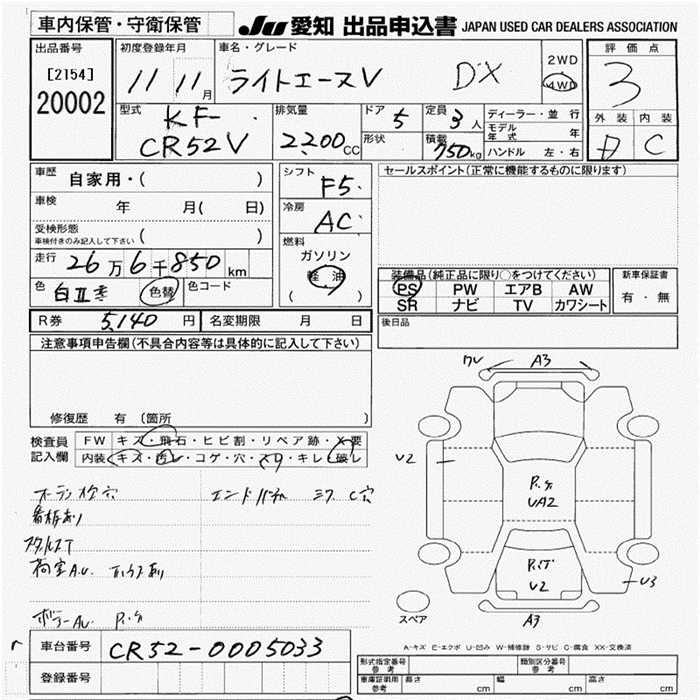 車内保管・守衛保管
JU 愛知 出品申込書 JAPAN USED CAR DEALERS ASSOCIATION
出品番号
[2154]
20002
初度登録年月
11年 11月
車名・グレード
ライトエースV DX
2WD
4WD
評価点
3
外装 内装
D C
型式
KF-
CR52V
排気量
2200cc
ドア 5
形状
定員 3人
積載 750kg
ディーラー・並行
モデル年式 年
ハンドル 左・右
車歴 自家用・( )
車検 年 月( 日)
受検形態
車検付きのみ記入して下さい ( )
走行 26万6千850km
色 白II 色替 色コード
シフト F5
冷房 AC
燃料
ガソリン
軽油
( )
セールスポイント(正常に機能するものに限ります)
装備品(純正品に限り○をつけてください)
PS PW エアB AW
SR ナビ TV カワシート
新車保証書
有・無
R券 5,140円 名変期限 月 日
後日品
注意事項申告欄(不具合内容等は具体的に記入して下さい)
修復歴 有(箇所
検査員記入欄
FW キズ・飛石・ヒビ割・リペア跡・X要
内装 キズ・汚レ・コゲ・穴・スリ・キレ・破レ
看板あり
荷室AU
ワレ A3
U2
P.S
UA2
U2
U3
A3
スペア
A-キズ E-エクボ U-凹み W-補修跡 S-サビ C-腐食 XX-交換済
車台番号 CR52-0005033
登録番号
形式指定番号 参考
類別区分番号 参考
車庫証明用 参考 長さ cm 幅 cm 高さ cm